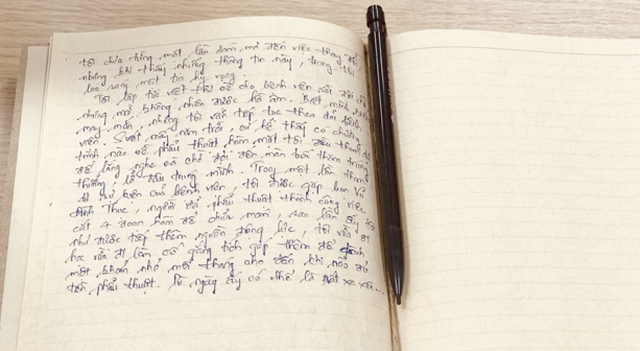 tôi chưa từng một lần dám mơ đến việc thay đổi
nhưng khi thấy những thông tin này, trong tôi
loe sáng một tia hy vọng.
Tôi lập tức viết thư về cho bệnh viện rồi
nhưng mà không nhận được hồi âm. Biết mình
may mắn, nhưng tôi vẫn tiếp tục theo dõi bệnh
viện. Suốt mấy năm trời, cứ hễ thấy có chương
trình nào về phẫu thuật hàm mặt tôi đều
để lắng nghe và chờ đợi đến màn bốc thăm trúng
thưởng, lỡ đâu trúng mình. Trong một lần tham
dự sự kiện của bệnh viện, tôi được gặp bạn Vũ
Đình Thức, người đã phẫu thuật thành công việc
cắt 4 đoạn hàm để chữa móm, sau lần ấy tôi
như được tiếp thêm nguồn động lực, tôi vừa đi
học vừa đi làm cố gắng tích góp thêm để dành
một khoản nhỏ mỗi tháng cho đến khi nào đủ
tiền phẫu thuật. Dù ngày ấy có thể là rất xa xôi...